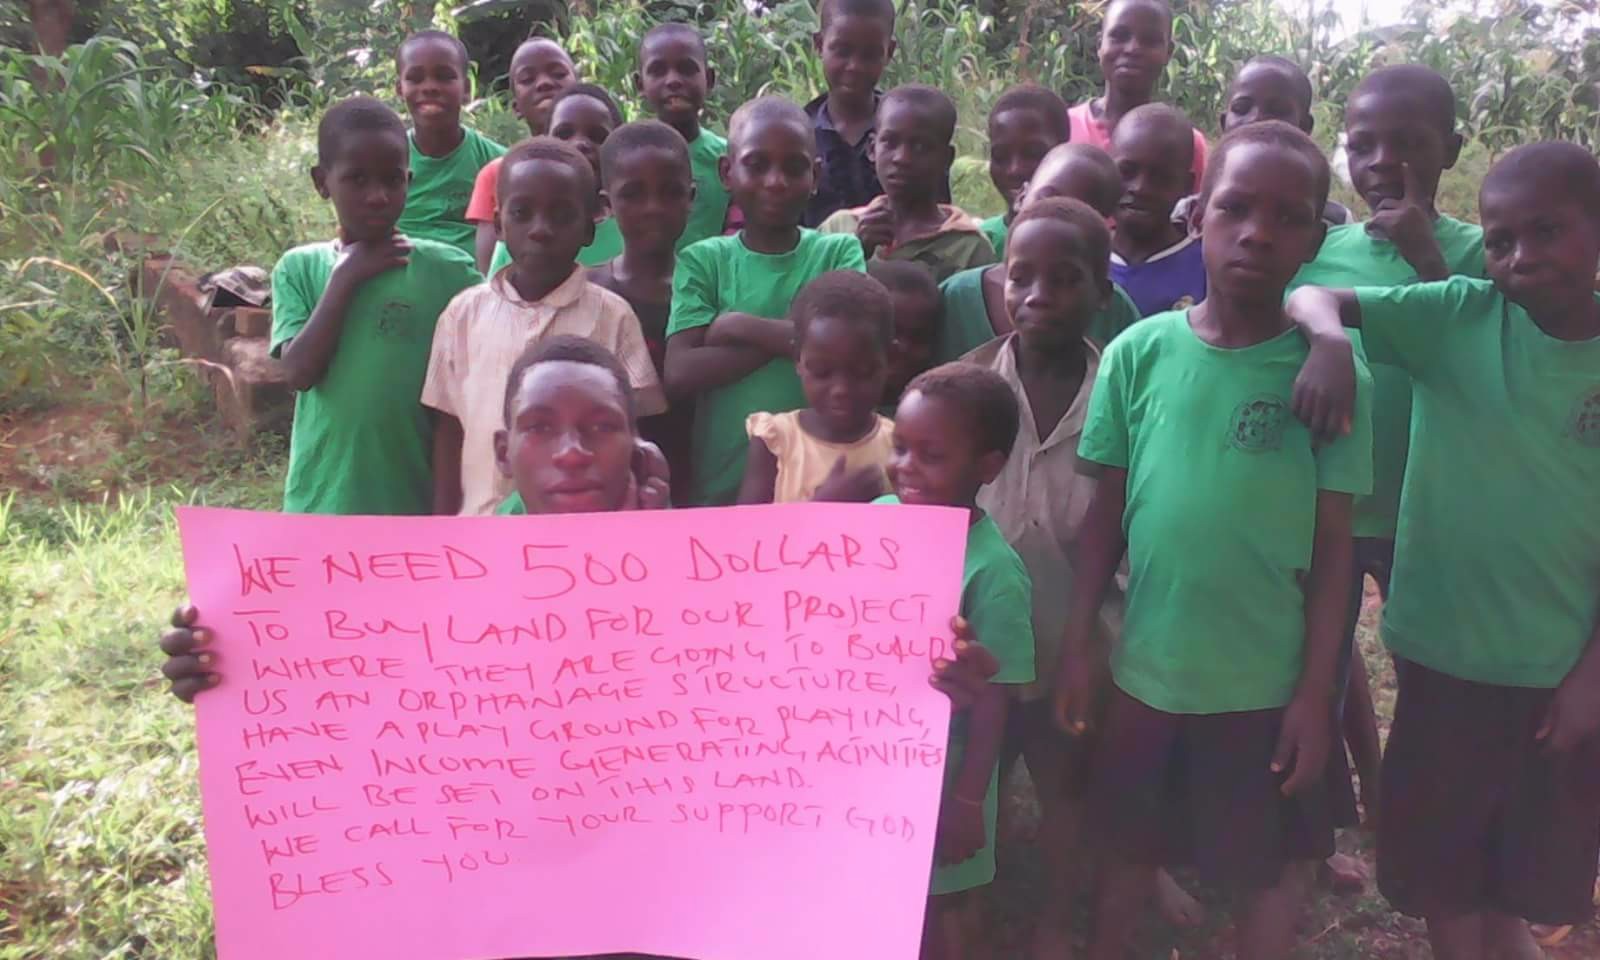 WE NEED 500 DOLLARS
TO BUY LAND FOR OUR PROJECT
WHERE THEY ARE GOING TO BUILD
US AN ORPHANAGE STRUCTURE,
HAVE A PLAY GROUND FOR PLAYING,
EVEN INCOME GENERATING ACTIVITIES
WILL BE SET ON THIS LAND.
WE CALL FOR YOUR SUPPORT GOD
BLESS YOU.